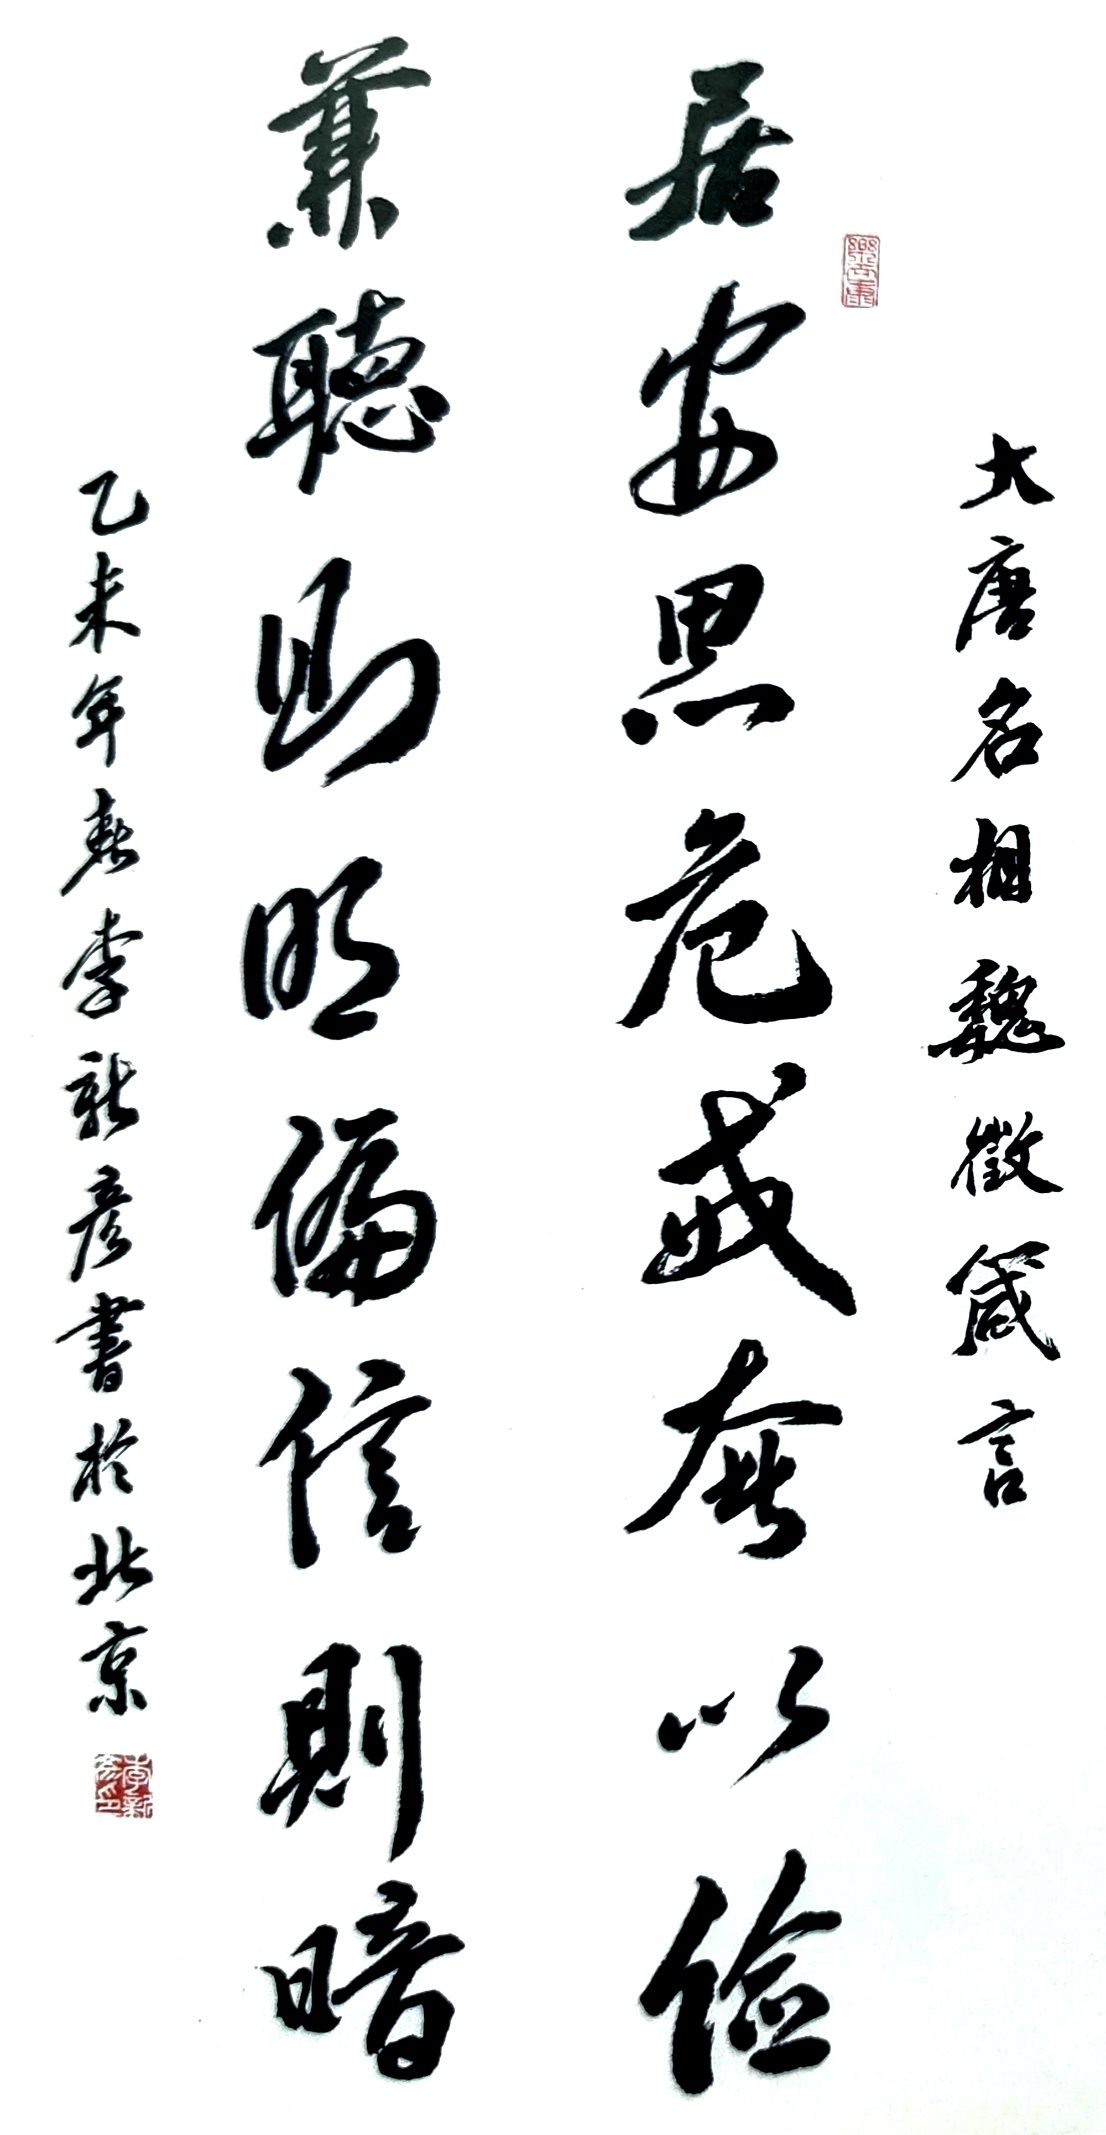 大唐名相魏徵箴言
居安思危戒奢以儉
兼聽則明偏信則暗
乙未年春李新彥書於北京